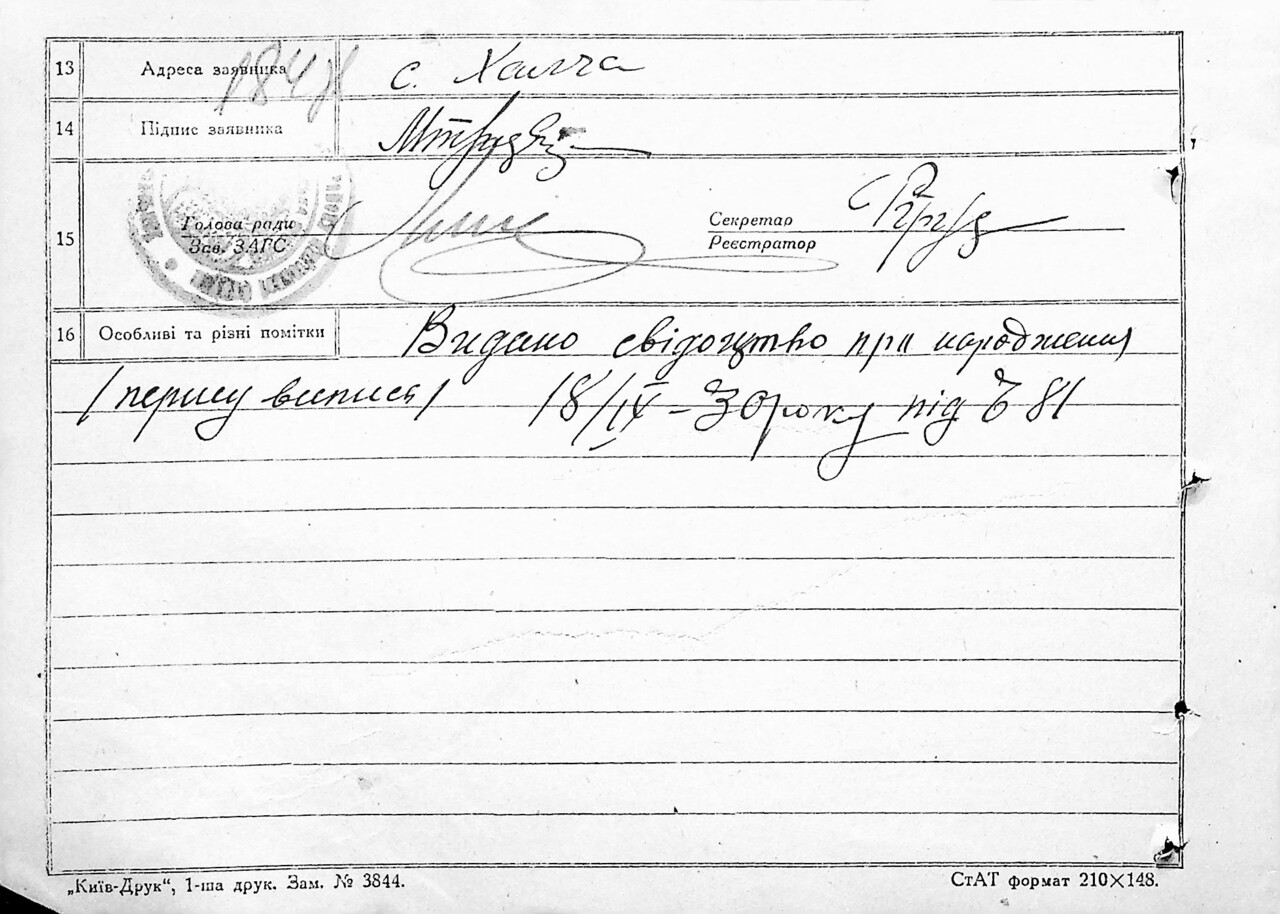 13 Адреса заявника с. Халча
14 Підпис заявника
15 Голова ради Секретар
Зав. ЗАГС Реєстратор
16 Особливі та різні помітки Видано свідоцтво при народження
/перису виписа/ 18/IX – 30 року під № 81
„Київ-Друк“, 1-ша друк. Зам. № 3844. СтАТ формат 210×148.